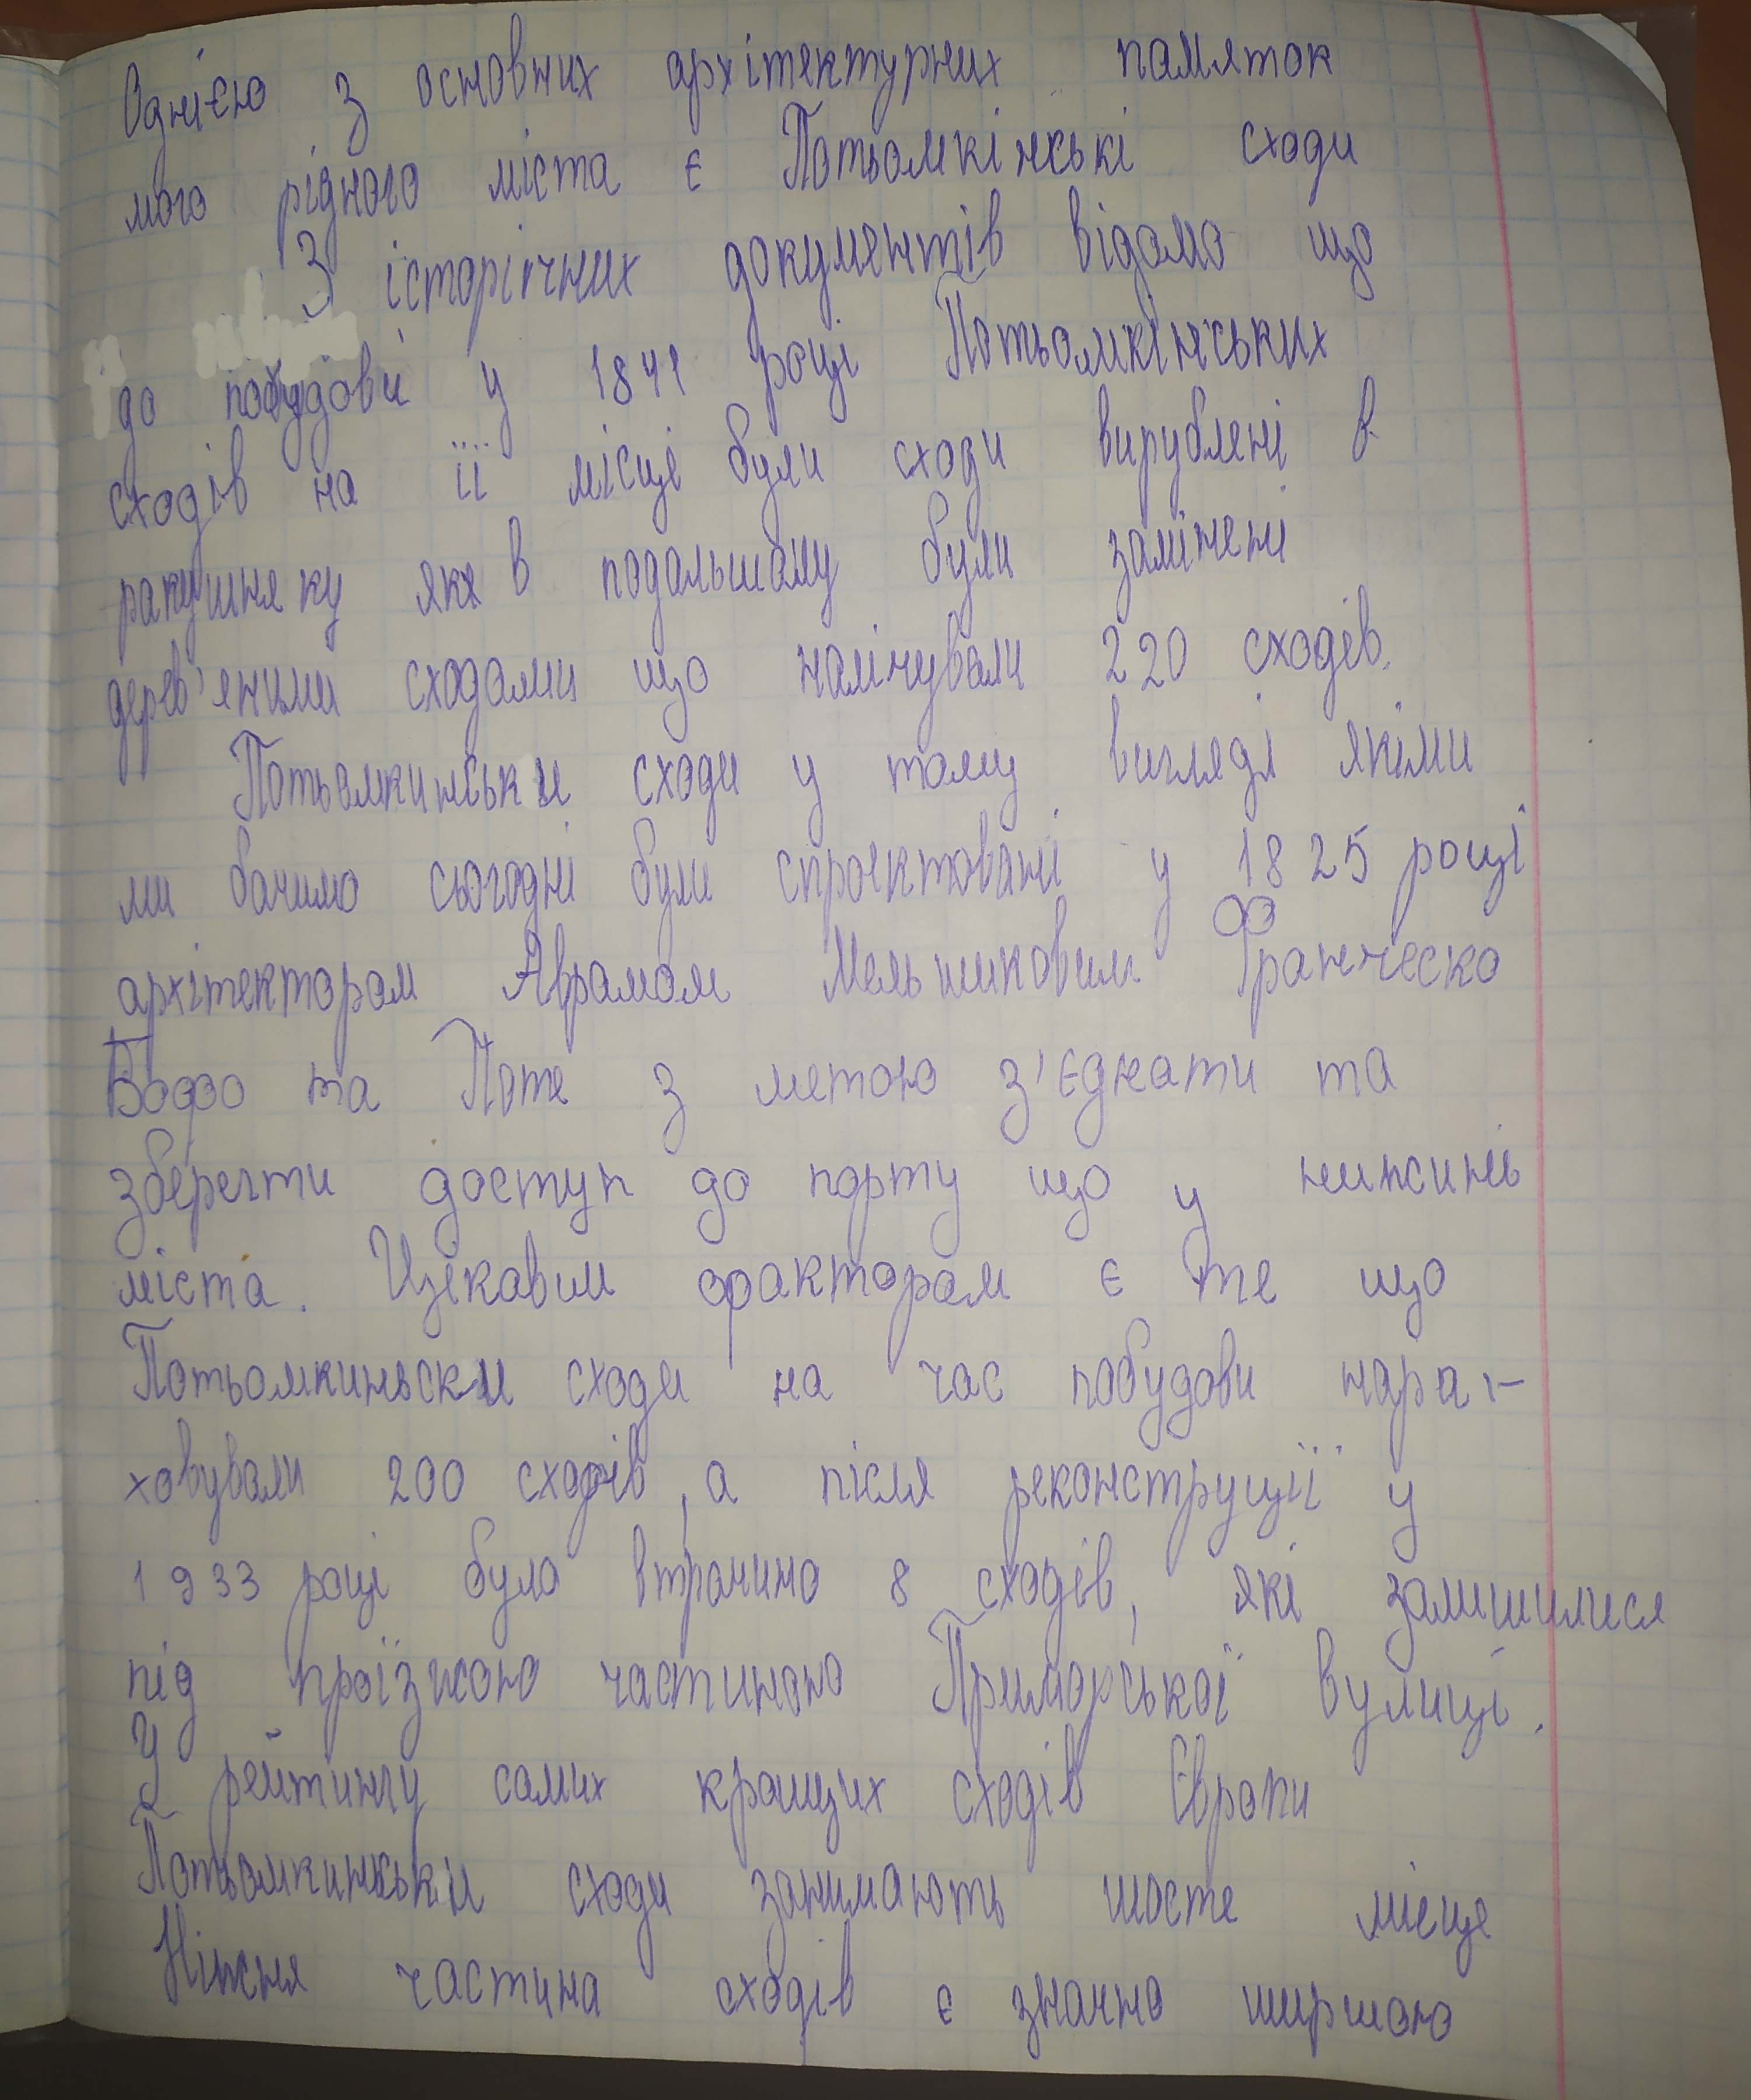 Однією з основних архітектурних памяток
мого рідного міста є Потьомкінські сходи
З історічних документів відомо що
до побудови у 1841 році Потьомкінських
сходів на її місці були сходи вирублені в
ракушняку які в подальшому були замінені
дерев'яними сходами що налічували 220 сходів.
Потьомкинськи сходи у тому вигляді якіми
ми бачимо сьогодні були спроектовані у 1825 році
архітектором Аврамом Мельниковим Франческо
Боффо та Поте з метою з'єднати та
зберегти доступ до порту що у нижинь
міста. Цікавим фактором є те що
Потьомкиньски сходи на час побудови нара-
ховували 200 сходів, а після реконструції у
1933 році було втрачино 8 сходів, які залишилися
під проїзжою частиною Приморської вулиці.
У рейтингу самих кращих сходів Європи
Потьомкинськи сходи занимають шосте місце
Ніжня частина сходів є значно ширшою